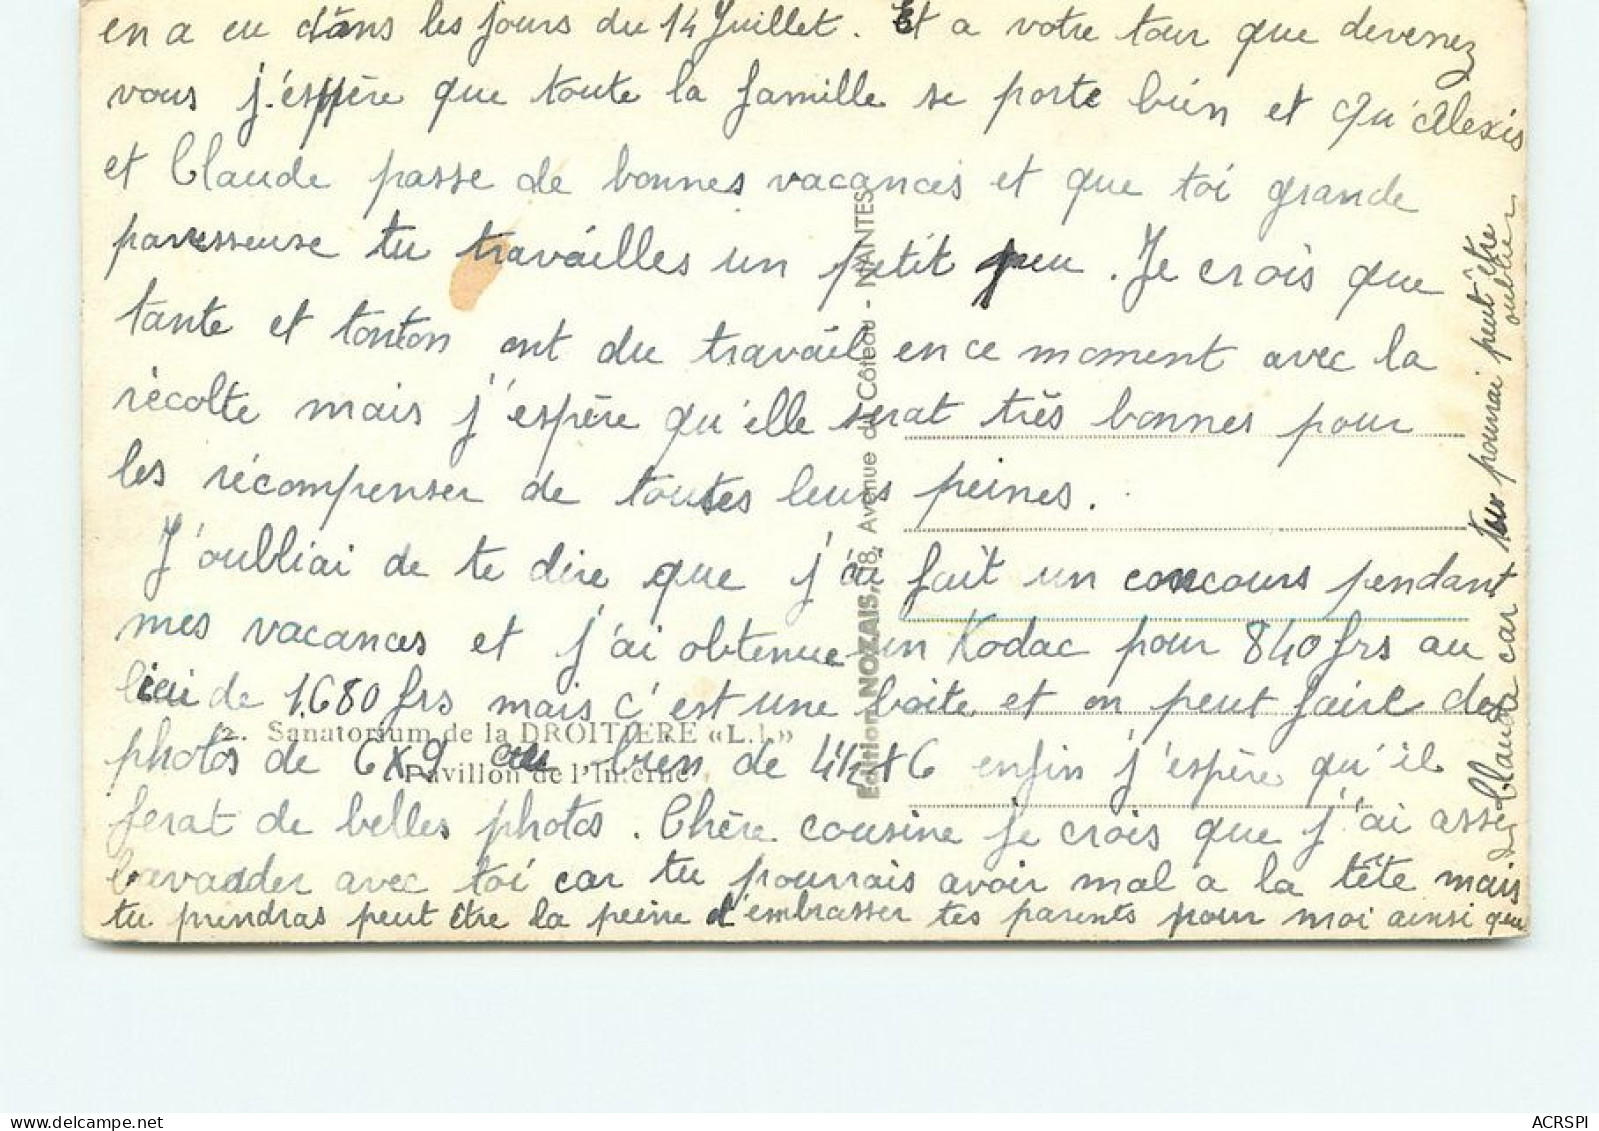 en a eu dans les jours du 14 Juillet. Et a votre tour que devenez
vous j'espère que toute la famille se porte bien et qu'Alexis
et Claude passe de bonnes vacances et que toi grande
paresseuse tu travailles un petit peu. Je crois que
tante et tonton ont du travail en ce moment avec la
récolte mais j'espère qu'elle serat très bonnes pour
les récompenser de toutes leurs peines.
J'oubliai de te dire que j'ai fait un concours pendant
mes vacances et j'ai obtenue un Kodac pour 840 frs au
lieu de 1.680 frs mais c'est une boite et on peut faire des
photos de 6x9 ou bien de 4½x6 enfin j'espère qu'il
ferat de belles photos. Chère cousine je crois que j'ai assez
bavadder avec toi car tu pourrais avoir mal a la tête mais
tu prendras peut être la peine d'embrasser tes parents pour moi ainsi que
Claude car tu pourrai peut être
oublier
2. Sanatorium de la DROITIERE «L.I.»
Pavillon de l'Interne
Edition NOZAIS, 18, Avenue du Côteau - NANTES
ACRSPI